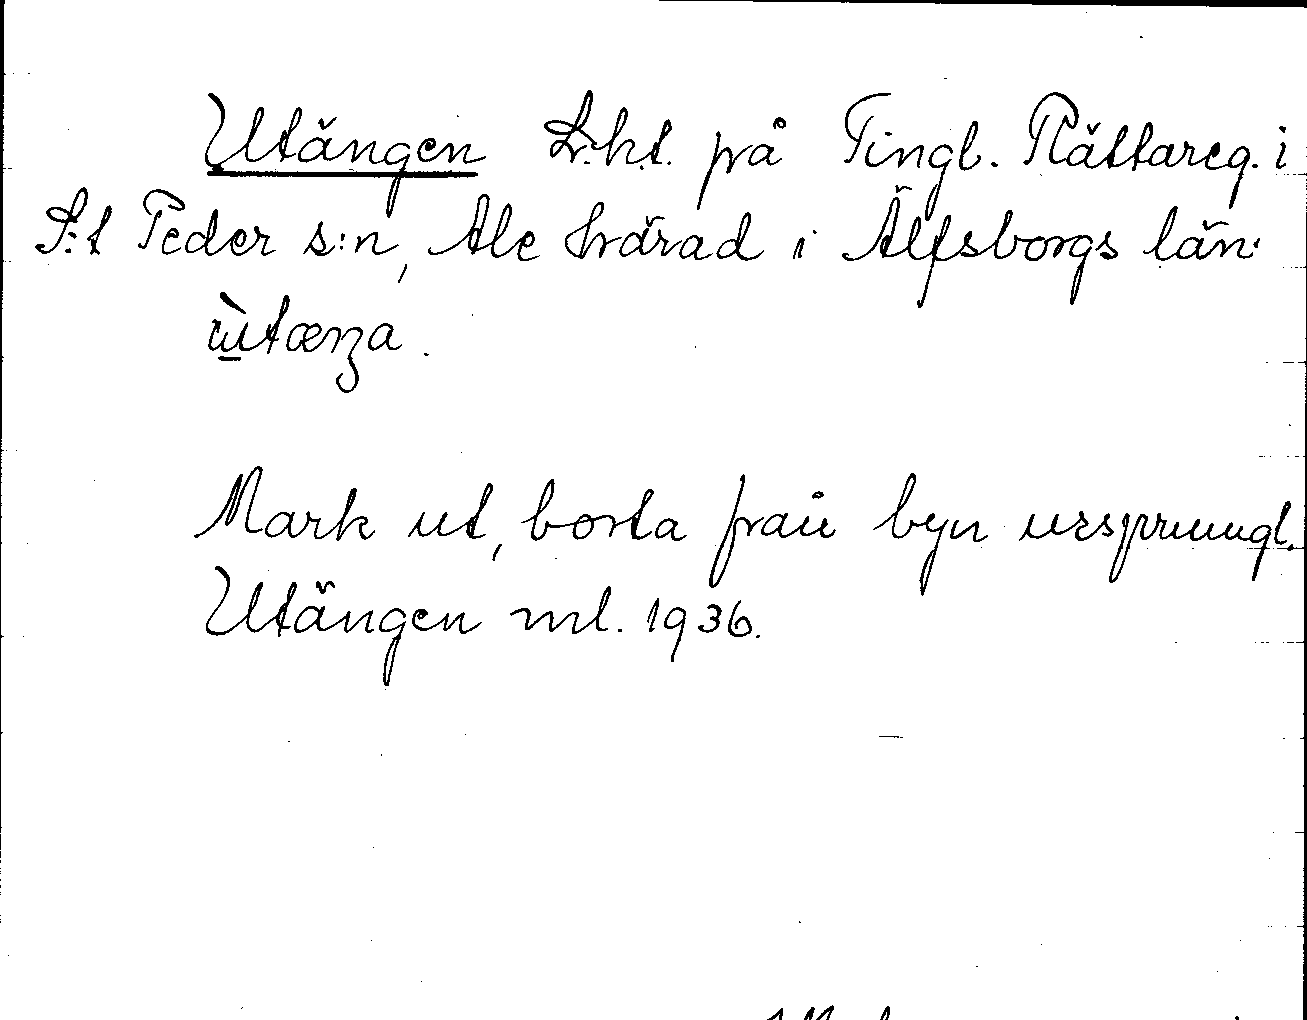 Utängen Lr:ht. på Tingb. Rättareg. i
S:t Peder s:n, Ale härad i Älfsborgs län.
ùtæŋa.
Mark ut, borta från byn ursprungl.
Utängen ml. 1936.